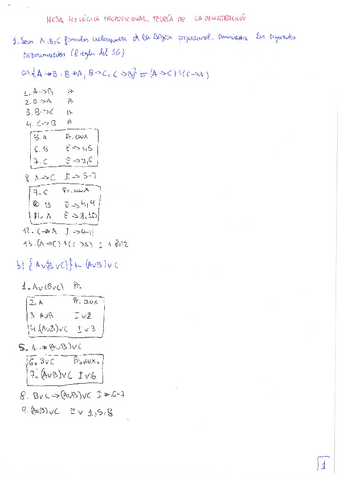 HOJA 4: LÓGICA PROPOSICIONAL. TEORÍA DE LA DEMOSTRACIÓN
1. Sean A, B, C fórmulas cualesquiera de la lógica proposicional. Demuestra los siguientes
razonamientos (Reglas del SG)
a) {A→B, B→A, B→C, C→B} ⊢ (A→C)∧(C→A)
1. A→B
2. B→A
3. B→C
4. C→B
5. A Pr. aux
6. B E→1,5
7. C E→3,6
8. A→C I→5-7
9. C Pr. aux
10. B E→4,9
11. A E→2,10
12. C→A I→9-11
13. (A→C)∧(C→A) I∧8,12
b) {A∨(B∨C)} ⊢ (A∨B)∨C
1. A∨(B∨C) Pr.
2. A Pr. aux
3. A∨B I∨2
4. (A∨B)∨C I∨3
5. A→(A∨B)∨C
6. B∨C Pr. aux.
7. (A∨B)∨C I∨6
8. B∨C→(A∨B)∨C I→6-7
9. (A∨B)∨C E∨1,5,8
1